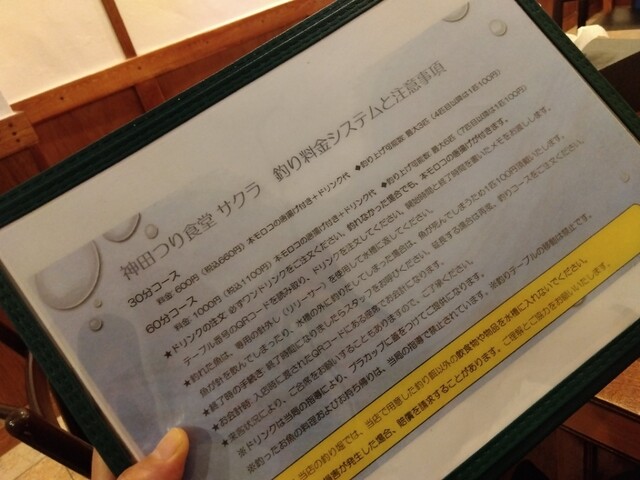 神田つり食堂 サクラ　釣り料金システムと注意事項
30分コース
料金: 600円（税込660円）本モロコの唐揚げ付き＋ドリンク代　◆釣り上げ可能数 最大3匹（4匹目以降は1匹100円）
60分コース
料金: 1000円（税込1100円）本モロコの唐揚げ付き＋ドリンク代　◆釣り上げ可能数 最大6匹（7匹目以降は1匹100円）
★ドリンクの注文: 必ずワンドリンクをご注文ください。釣れなかった場合でも、本モロコの唐揚げが付きます。
テーブル番号のQRコードを読み取り、ドリンクを注文してください。開始時間と終了時間を書いたメモをお渡しします。
★釣れた魚は、専用の針外し（リリーサー）を使用して水槽に返してください。
魚が針を飲んでしまったり、水槽の外に釣りだしてしまった場合は、魚が死んでしまうため1匹100円頂戴いたします。
★終了時の手続き: 終了時間になりましたらスタッフをお呼びください。延長する場合は再度、釣りコースをご注文ください。
★お会計時: 入店時に渡されたQRコードにある座席でお会計になります。
★来客状況により、ご合席をお願いすることもありますので、ご了承ください。
※ドリンクは当局の指導により、プラカップに蓋をつけてご提供になります。
※釣ったお魚の料理およびお持ち帰りは、当局の指導で禁止されています。　※釣りテーブルの接触は禁止です。
当店の釣り堀では、当店で用意した釣り餌以外の飲食物や物品を水槽に入れないでください。
損害が発生した場合、賠償を請求することがあります。ご理解とご協力をお願いいたします。